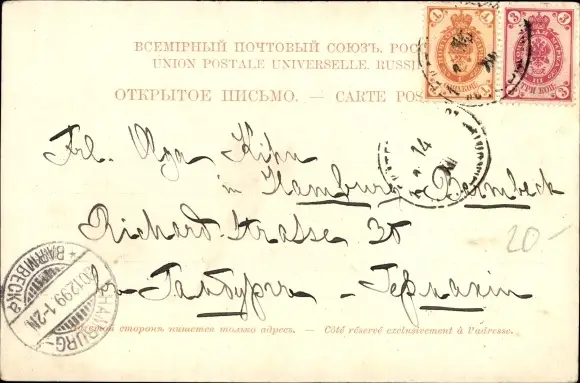 ВСЕМІРНЫЙ ПОЧТОВЫЙ СОЮЗЪ. РОС
UNION POSTALE UNIVERSELLE. RUSSI
ОТКРЫТОЕ ПИСЬМО. — CARTE POS
1 1
3 3
ТРИ КОП.
14
Frl. Olga Kihn
in Hamburg Barmbeck
Richard-Strasse 36
20-
въ Гамбургъ - Германія
HAMBURG-
* BARMBECK a
20.12.99. 1-2N
сторонѣ пишется только адресъ. — Côté réservé exclusivement à l'adresse.